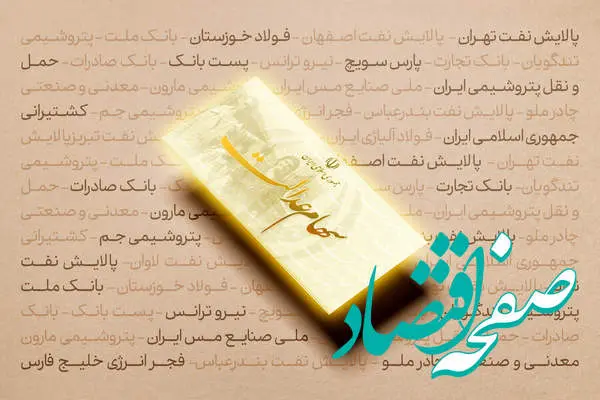 پالایش نفت تهران – پالایش نفت اصفهان – فولاد خوزستان – بانک ملت – پتروشیمی
تندگویان – بانک تجارت – پارس سویچ – نیرو ترانس – پست بانک – بانک صادرات – حمل
و نقل پتروشیمی ایران – ملی صنایع مس ایران – پتروشیمی مارون – معدنی و صنعتی
چادر ملو – پالایش نفت بندرعباس – فجر انرژی پتروشیمی جم – کشتیرانی
جمهوری اسلامی ایران – فولاد آلیاژی ایران نفت تبریز پالایش
نفت تهران – پالایش نفت ملت – پتروشیمی
تندگویان – بانک تجارت – پارس بانک – بانک صادرات – حمل
و نقل پتروشیمی ایران – پتروشیمی مارون – معدنی و صنعتی
چادر ملو – پالایش پتروشیمی جم – کشتیرانی
جمهوری اسلامی پالایش نفت لاوان – پالایش نفت
فولاد خوزستان – بانک ملت
نیرو ترانس – پست بانک – بانک
صادرات – حمل ملی صنایع مس ایران – پتروشیمی مارون
معدنی و ملو – پالایش نفت بندرعباس – فجر انرژی خلیج فارس
جمهوری اسلامی ایران
سهام عدالت
صفحه اقتصاد